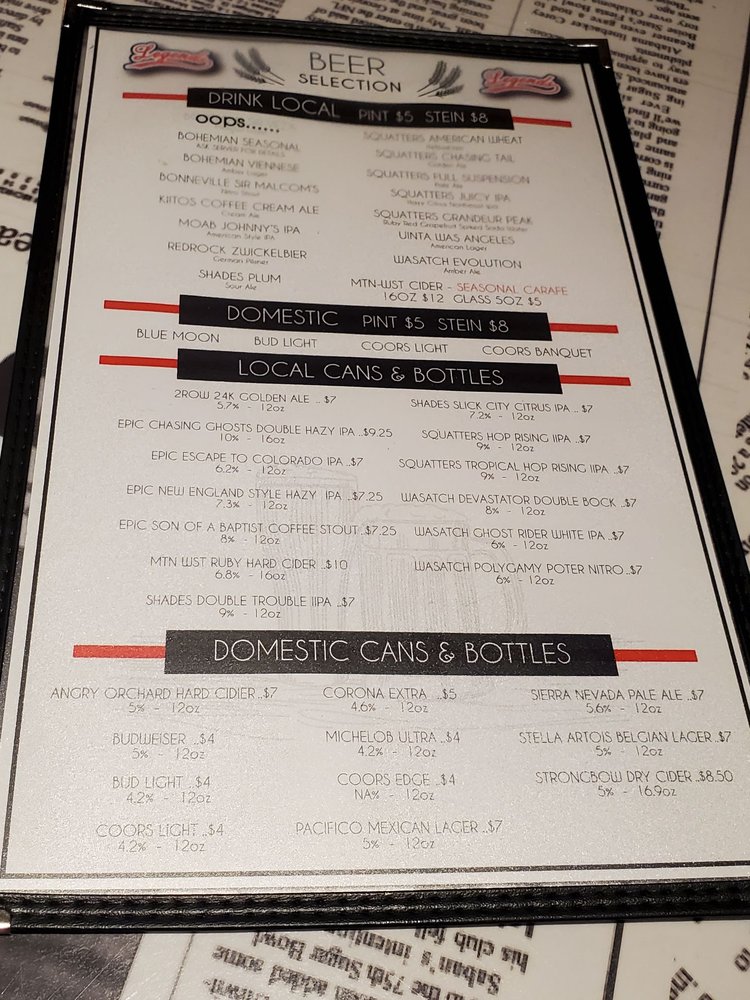 Legends
BEER
SELECTION
Legends
DRINK LOCAL PINT $5 STEIN $8
oops......
BOHEMIAN SEASONAL
ASK SERVER FOR DETAILS
BOHEMIAN VIENNESE
Amber Lager
BONNEVILLE SIR MALCOM'S
Nitro Stout
KIITOS COFFEE CREAM ALE
Cream Ale
MOAB JOHNNY'S IPA
American Style IPA
REDROCK ZWICKELBIER
German Pilsner
SHADES PLUM
Sour Ale
SQUATTERS AMERICAN WHEAT
Hefeweizen
SQUATTERS CHASING TAIL
Golden Ale
SQUATTERS FULL SUSPENSION
Pale Ale
SQUATTERS JUICY IPA
Hazy Citrus Northeast Ipa
SQUATTERS GRANDEUR PEAK
Ruby Red Grapefruit Spiked Soda Water
UINTA WAS ANGELES
American Lager
WASATCH EVOLUTION
Amber Ale
MTN-WST CIDER - SEASONAL CARAFE
16OZ $12 GLASS 5OZ $5
DOMESTIC PINT $5 STEIN $8
BLUE MOON BUD LIGHT COORS LIGHT COORS BANQUET
LOCAL CANS & BOTTLES
2ROW 24K GOLDEN ALE ..$7
5.7% - 12oz
EPIC CHASING GHOSTS DOUBLE HAZY IPA ..$9.25
10% - 16oz
EPIC ESCAPE TO COLORADO IPA ..$7
6.2% - 12oz
EPIC NEW ENGLAND STYLE HAZY IPA ..$7.25
7.3% - 12oz
EPIC SON OF A BAPTIST COFFEE STOUT ..$7.25
8% - 12oz
MTN WST RUBY HARD CIDER ..$10
6.8% - 16oz
SHADES DOUBLE TROUBLE IIPA ..$7
9% - 12oz
SHADES SLICK CITY CITRUS IPA ... $7
7.2% - 12oz
SQUATTERS HOP RISING IIPA ..$7
9% - 12oz
SQUATTERS TROPICAL HOP RISING IIPA ..$7
9% - 12oz
WASATCH DEVASTATOR DOUBLE BOCK ..$7
8% - 12oz
WASATCH GHOST RIDER WHITE IPA ..$7
6% - 12oz
WASATCH POLYGAMY POTER NITRO ..$7
6% - 12oz
DOMESTIC CANS & BOTTLES
ANGRY ORCHARD HARD CIDIER ..$7
5% - 12oz
BUDWEISER ..$4
5% - 12oz
BUD LIGHT ..$4
4.2% - 12oz
COORS LIGHT ..$4
4.2% - 12oz
CORONA EXTRA ..$5
4.6% - 12oz
MICHELOB ULTRA ..$4
4.2% - 12oz
COORS EDGE ..$4
NA% - 12oz
PACIFICO MEXICAN LAGER ..$7
5% - 12oz
SIERRA NEVADA PALE ALE ..$7
5.6% - 12oz
STELLA ARTOIS BELGIAN LAGER ..$7
5% - 12oz
STRONGBOW DRY CIDER ..$8.50
5% - 16.9oz
in the 75th Sugar Bowl
Saban's intention
his club fell